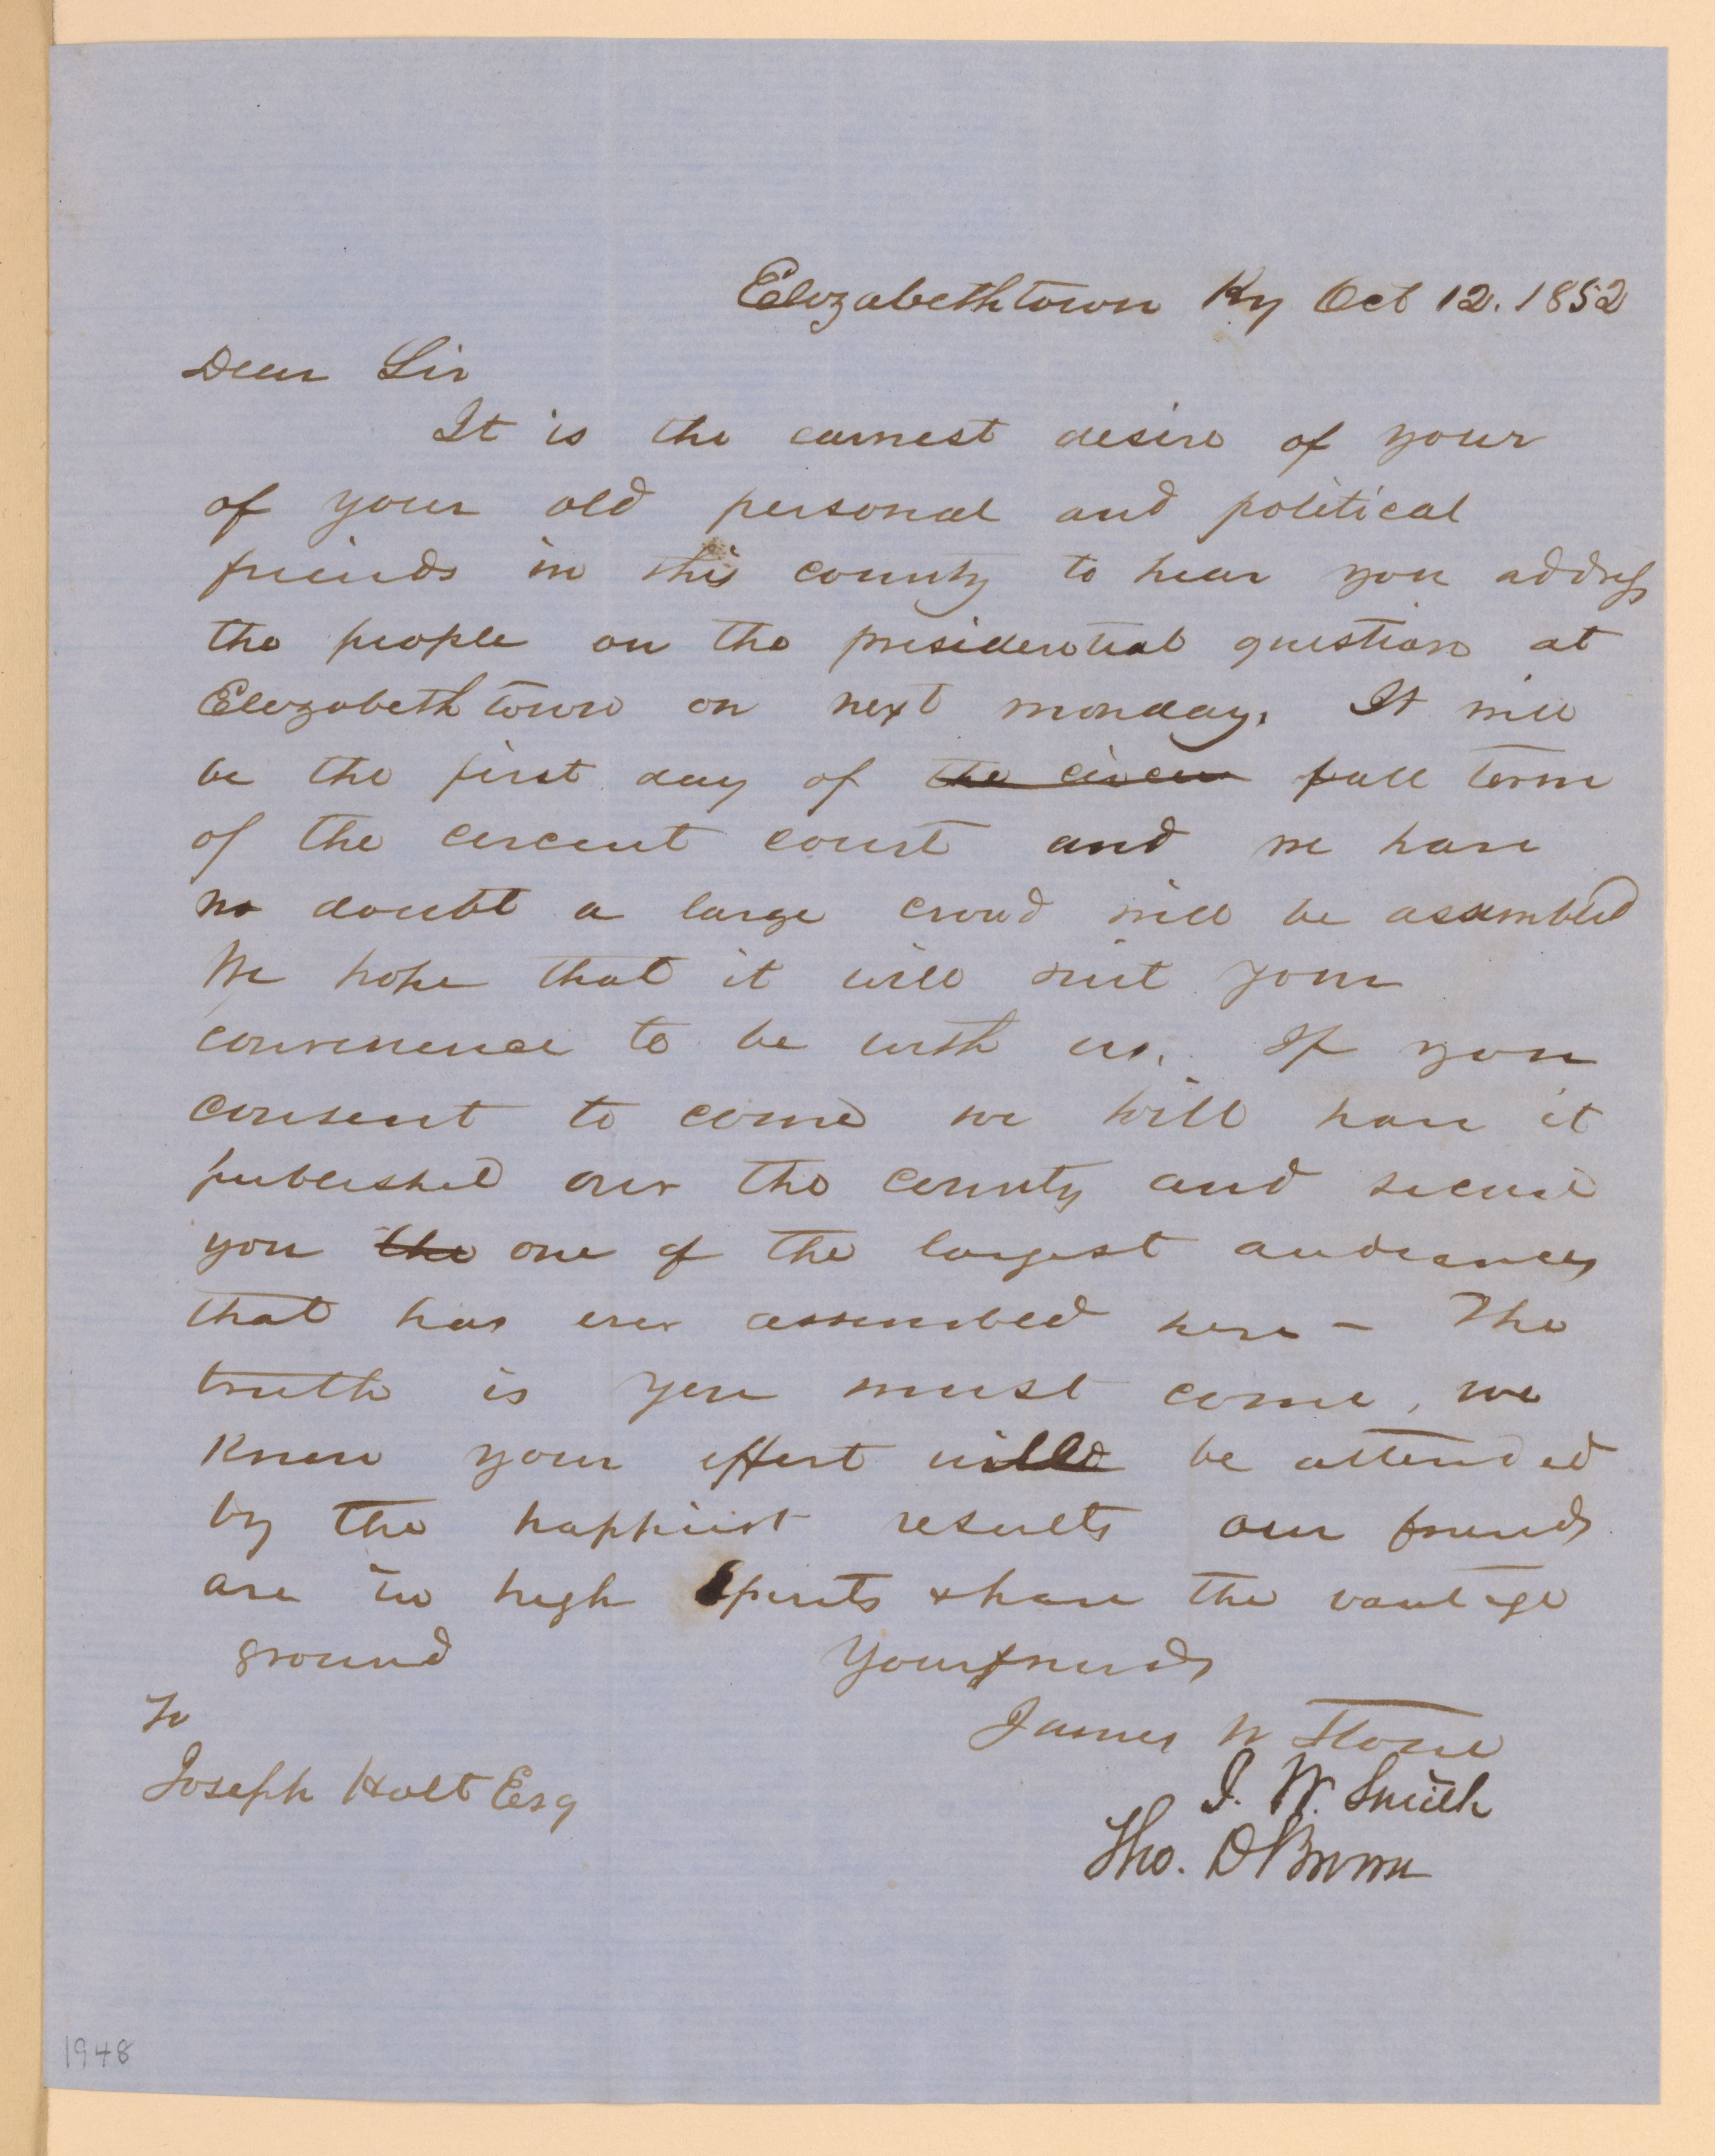 Elizabethtown Ky Oct 12. 1852
Dear Sir
It is the earnest desire of your
of your old personal and political
friends in this county to hear you address
the people on the presidential question at
Elizabethtown on next monday. It will
be the first day of the circu fall term
of the circuit court and we have
no doubt a large crowd will be assembled
We hope that it will suit your
convenience to be with us. If you
consent to come we will have it
published over the county and secure
you the one of the largest audiances
that has ever assembled here - The
truth is you must come, we
know your effort will be attended
by the happiest results our friends
are in high spirits & have the vantage
ground
Your friends
James W Stone
J. W. Smith
Tho. D Brown
To
Joseph Holt Esq
1948